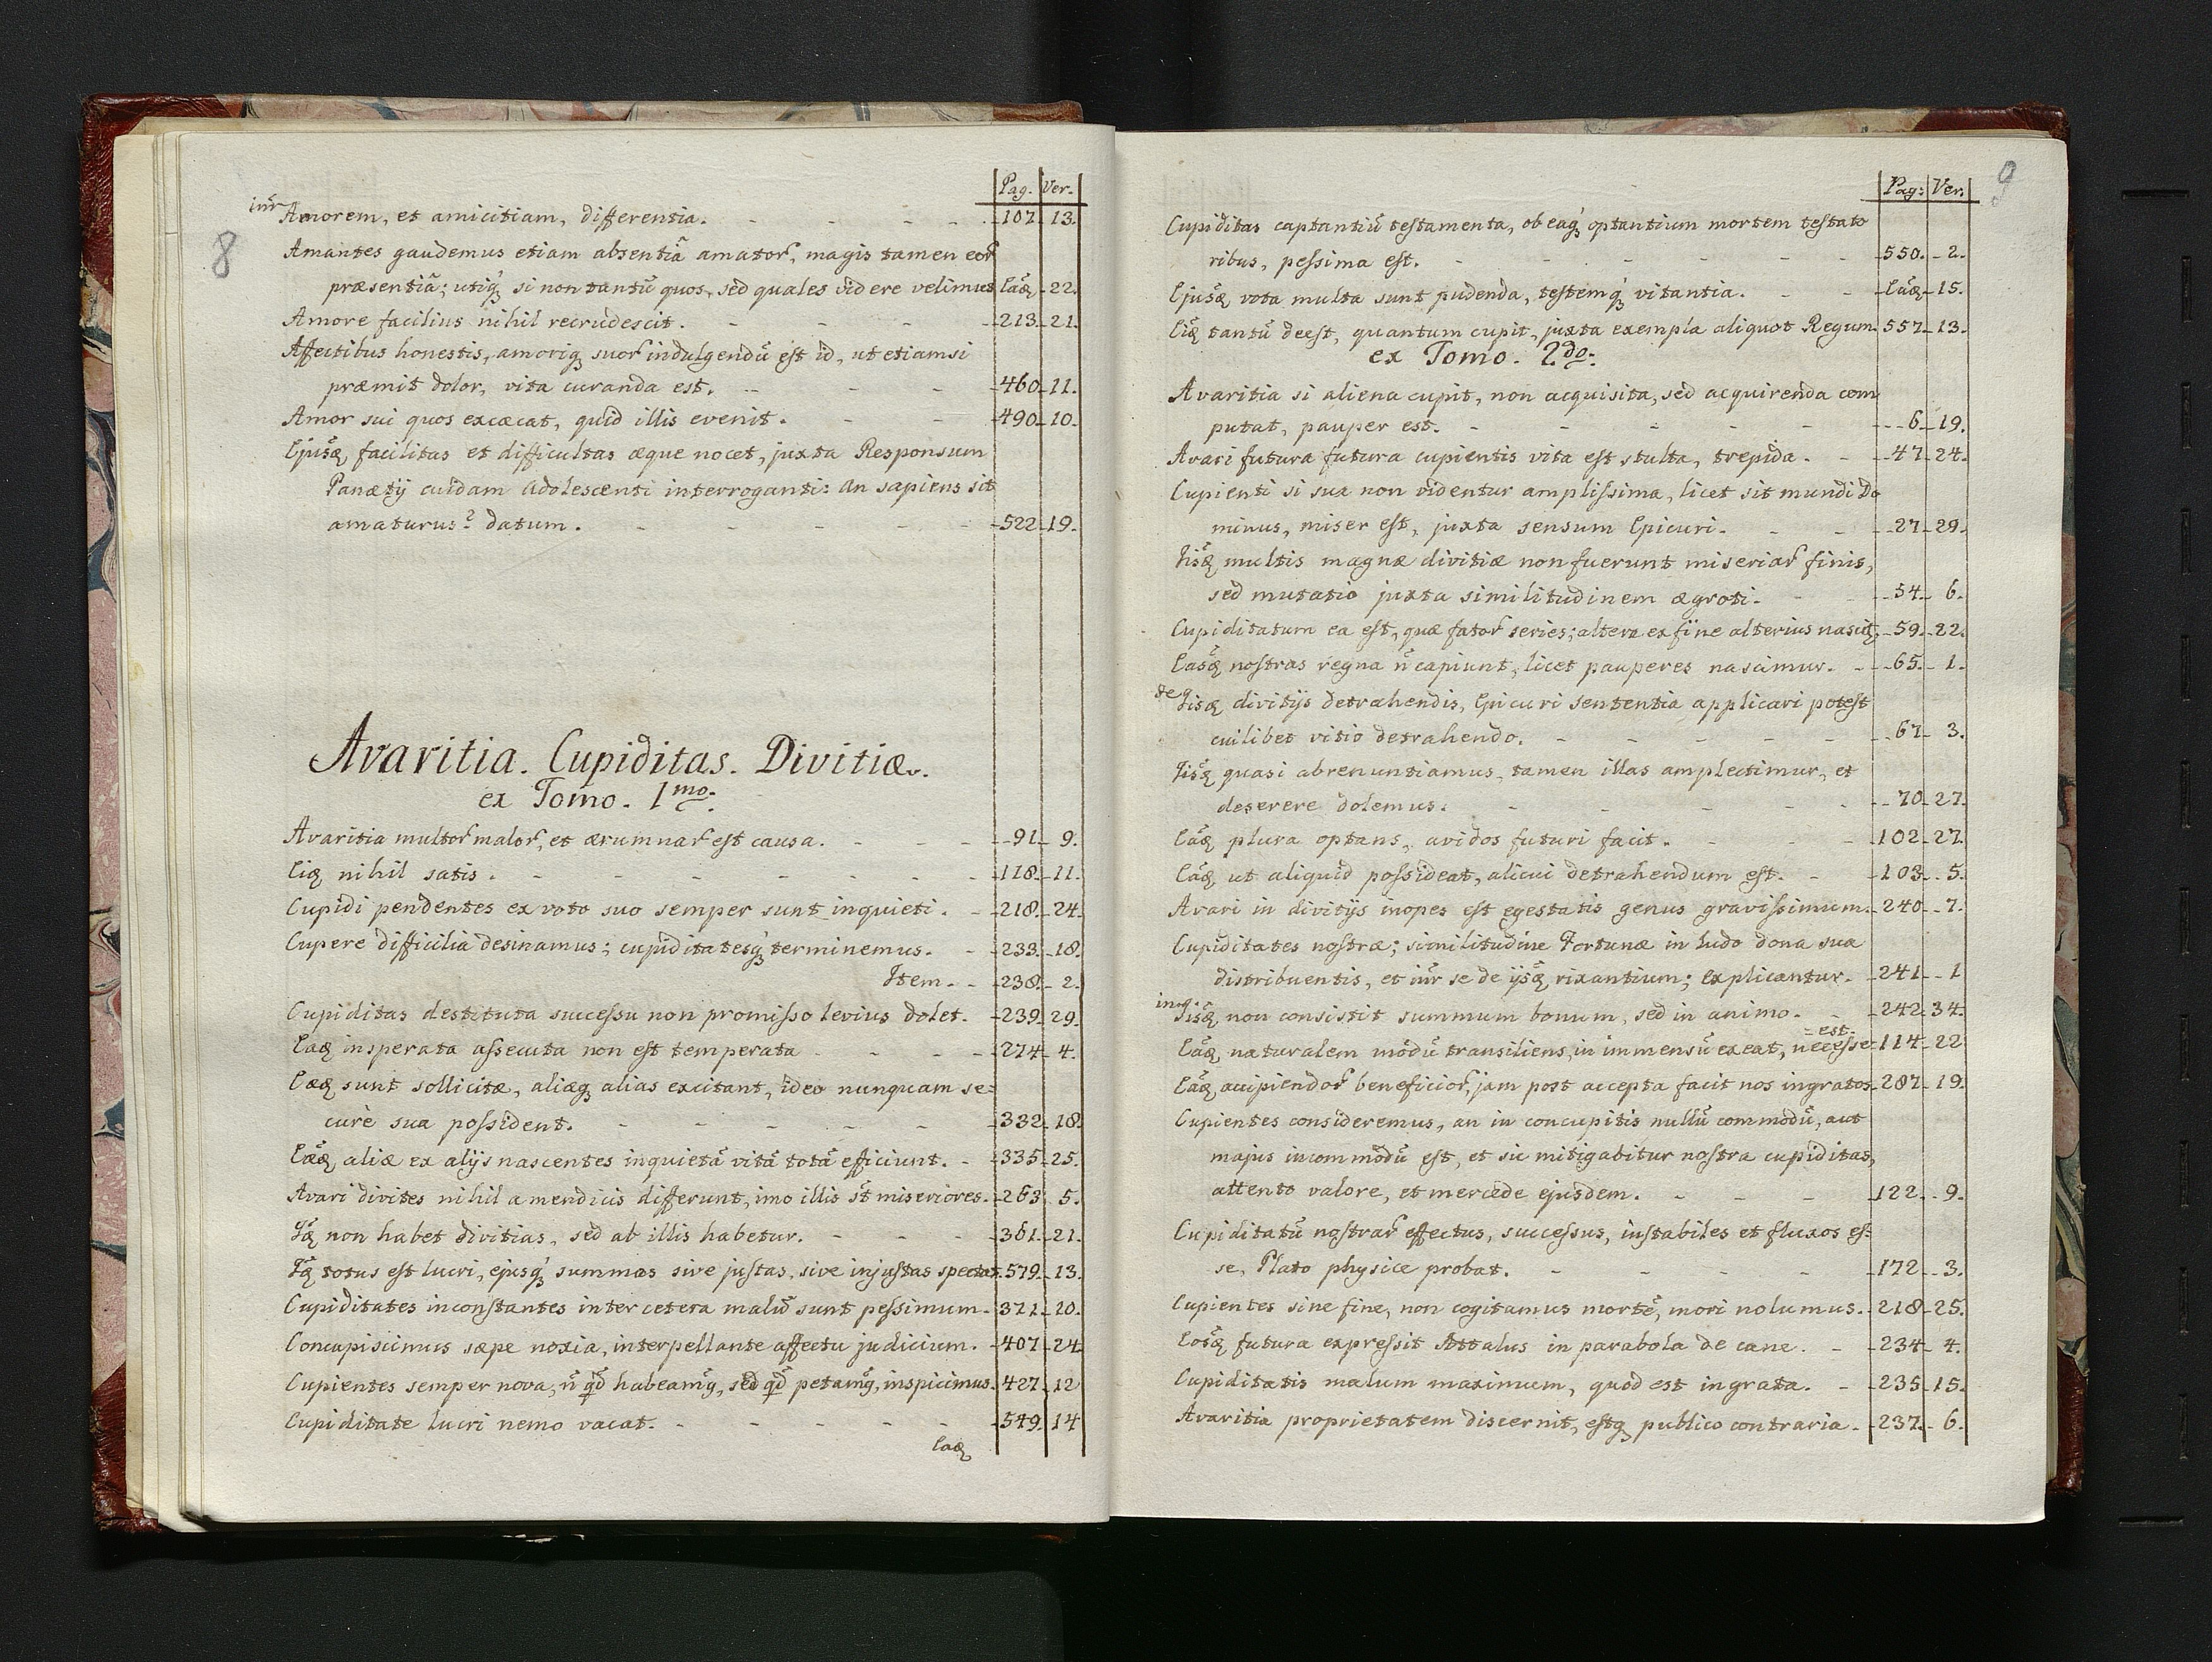 8
Pag. Ver.
inr̃ Amorem, et amicitiam, differentia. 107. 13.
Amantes gaudemus etiam absentiã amator̃, magis tamen eor̃
præsentiã; utiq́ꝫ si non tantũ quos, sed quales videre velimus Eãꝗ 22.
Amore facilius nihil recrudescit. 213. 21.
Affectibus honestis, amoriqꝫ suor̃ indulgendũ est id, ut etiamsi
præmit dolor, vita curanda est. 460. 11.
Amor sui quos excæcat, quid illis evenit. 490. 10.
Ejusq̃, facilitas et difficultas æque nocet, juxta Responsum
Panætij cuidam Adolescenti interroganti: An sapiens sit
amaturus? datum. 522. 19.
Avaritia. Cupiditas. Divitiæ.
ex Tomo. 1mo.
Avaritia multor̃ malor̃, et ærumnar̃ est causa. 91. 9.
Eiꝗ nihil satis. 118. 11.
Cupidi pendentes ex voto suo semper sunt inquieti. 218. 24.
Cupere difficilia desinamus; cupiditatesq́ꝫ terminemus. 233. 18.
Item. 238. 2.
Cupiditas destituta successu non promisso levius dolet. 239. 29.
Eaꝗ insperata assecuta non est temperata 274. 4.
Eæꝗ sunt sollicitæ, aliæqꝫ alias excitant, ideo nunquam se=
curè sua possident. 332. 18.
Eæ̃ꝗ, aliæ ex alijs nascentes inquietã vitã totã efficiunt. 335. 25.
Avari divites nihil a mendicis differunt, imo illis st̃ miseriores. 263. 5.
Iꝗ̃ non habet divitias, sed ab illis habetur. 361. 21.
Iꝗ̃ totus est lucri, ejusq́ꝫ summas sive justas, sive injustas spectat. 579. 13.
Cupiditates inconstantes inter cetera malũ sunt pessimum. 371. 20.
Concupiscimus sæpe noxia, interpellante affectu judicium. 407. 24
Cupientes semper nova, ñ qd̃ habeamꝯ, sed qd̃ petamꝯ, inspicimus. 427. 12
Cupiditate lucri nemo vacat. 549. 14
Eaꝗ
9
Pag: Ver.
Cupiditas captantiũ testamenta, ob eaq́ꝫ optantium mortem testato
ribus, pessima est. 550. 2.
Ejusꝗ̃, vota multa sunt pudenda, testemq́ꝫ vitantia. Eãꝗ 15.
Eiꝗ̃ tantũ deest, quantum cupit, juxta exempla aliquot Regum. 557. 13.
ex Tomo. 2do.
Avaritia si aliena cupit, non acquisita, sed acquirenda com
putat, pauper est. 6. 19.
Avari futura futura cupientis vita est stulta, trepida. 47. 24.
Cupienti si sua non videntur amplissima, licet sit mundi Do
minus, miser est, juxta sensum Epicuri. 27. 29.
Iisꝗ̃ multis magnæ divitiæ non fuerunt miseriar̃ finis,
sed mutatio juxta similitudinem ægroti. 54. 6.
Cupiditatum ea est, quæ fator̃ series; altera ex fine alterius nascitꝫ 59. 22.
Easꝗ̃ nostras regna ñ capiunt, licet pauperes nascimur. 65. 1.
de Iisꝗ divitijs detrahendis, Epicuri sententia applicari potest
cuilibet vitio detrahendo. 67. 3.
Iisꝗ̃ quasi abrenuntiamus, tamen illas amplectimur, et
deserere dolemus. 70. 27.
Eãꝗ plura optans, avidos futuri facit. 102. 27.
Eãꝗ ut aliquid possideat, alicui detrahendum est. 103. 5.
Avari in divitijs inopes est egestatis genus gravissimum. 240. 7.
Cupiditates nostræ; similitudine Fortunæ in ludo dona sua
distribuentis, et inr̃ se de ijsꝗ̃ rixantium; explicantur. 241. 1
in Iisꝗ̃ non consistit summum bonum, sed in animo. 242. 34.
Eãꝗ, naturalem modũ transiliens, in immensũ exeat, necesse est. 114. 22
Eãꝗ, accipiendor̃ beneficior̃, jam post accepta facit nos ingratos. 287. 19.
Cupientes consideremus, an in concupitis nullũ commodũ, aut
majus incommodũ est, et sic mitigabitur nostra cupiditas,
attento valore, et mercede ejusdem. 122. 9.
Cupiditatũ nostrar̃ effectus, successus, instabiles et fluxos es=
se, Plato physice probat. 172. 3.
Cupientes sine fine, non cogitamus mortẽ, mori nolumus. 218. 25.
Eosꝗ̃ futura expressit Attalus in parabola de cane. 234. 4.
Cupiditatis malum maximum, quod est ingrata. 235. 15.
Avaritia proprietatem discernit, estqꝫ publico contraria. 237. 6.